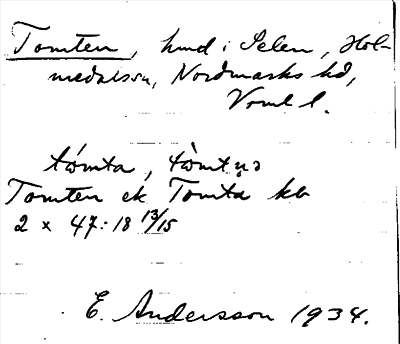 Tomten, hmd i Selen, Hol-
medalssn, Nordmarks hd,
Vrml l.
támta, tàmtṇə
Tomten ek Tomta kb
2 x 47:18 13/15
E. Andersson 1934.